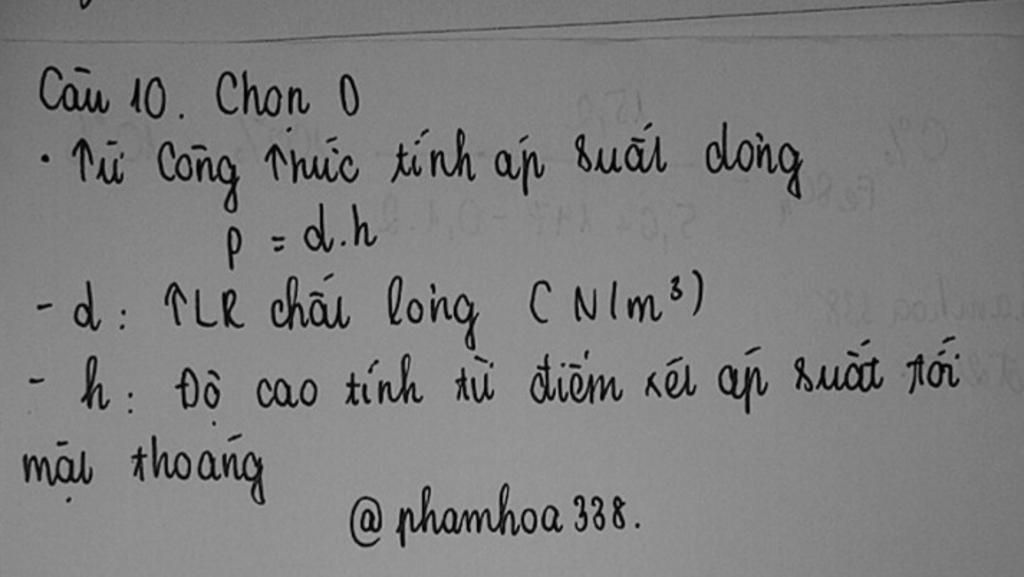 Câu 10. Chọn D
• Từ công thức tính áp suất lỏng
p = d.h
- d: TLR chất lỏng (N/m³)
- h: Độ cao tính từ điểm xét áp suất tới
mặt thoáng
@phamhoa338.